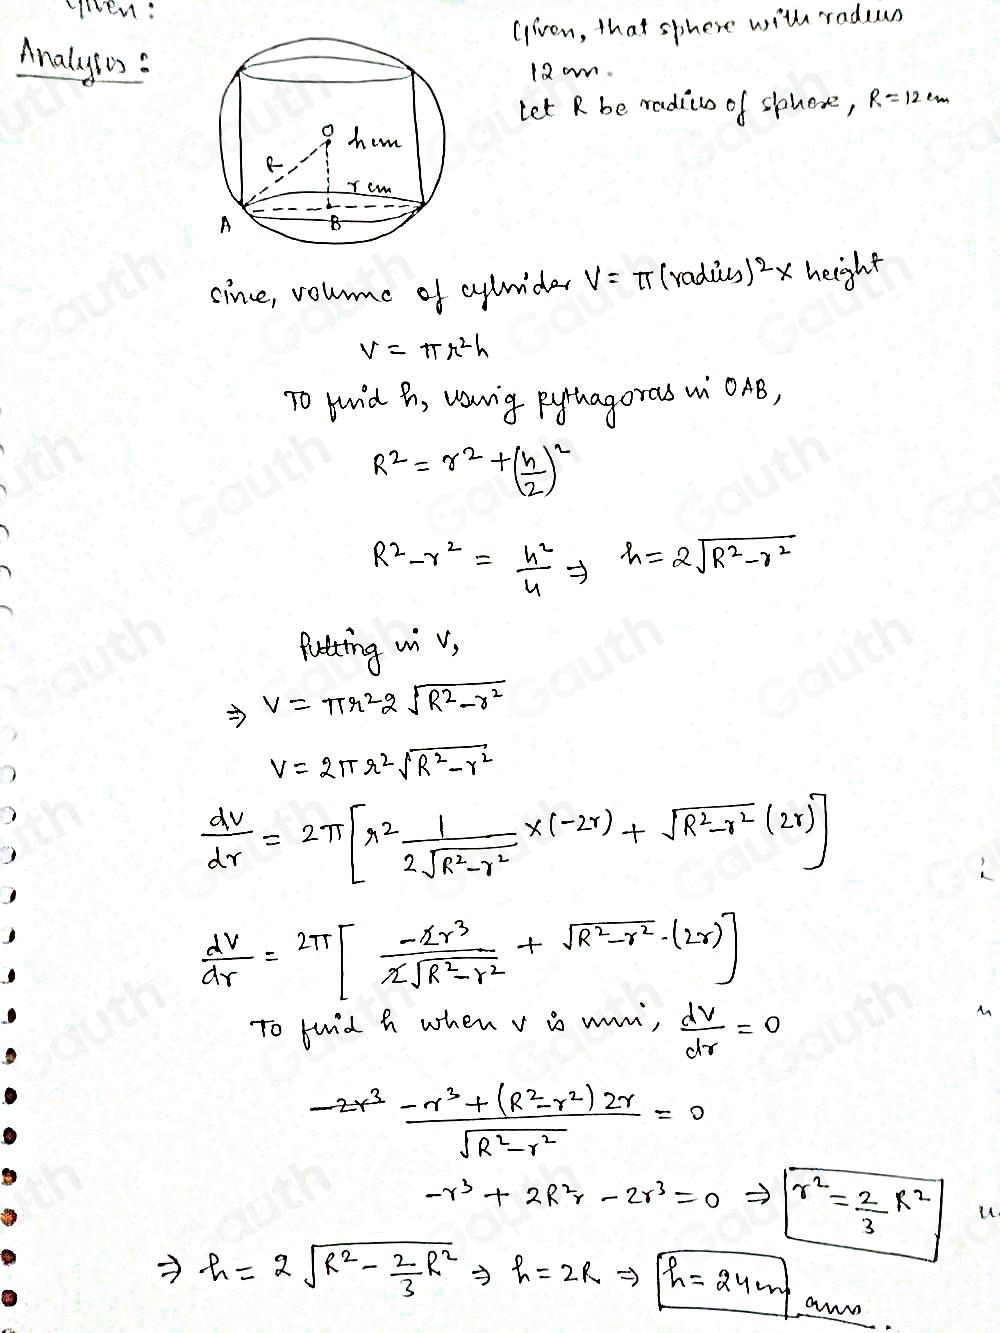 Given:
Analysis:
Given, that sphere with radius
12 cm.
Let R be radius of sphere, R = 12 cm
O
h cm
R
r cm
A
B
since, volume of cylinder V = π(radius)² × height
V = πr²h
To find h, using pythagoras in OAB,
R² = r² + (h/2)²
R² - r² = h²/4 ⇒ h = 2√(R² - r²)
Putting in V,
⇒ V = πr²2√(R² - r²)
V = 2πr²√(R² - r²)
dv/dr = 2π[r² 1/(2√(R² - r²)) × (-2r) + √(R² - r²) (2r)]
dv/dr = 2π[-2r³/(2√(R² - r²)) + √(R² - r²) · (2r)]
To find h when v is mini, dv/dr = 0
-2r³ (-r³ + (R² - r²) 2r)/√(R² - r²) = 0
-r³ + 2R²r - 2r³ = 0 ⇒ r² = 2/3 R²
⇒ h = 2√(R² - 2/3 R²) ⇒ h = 2R ⇒ h = 24 cm ans
Gauth